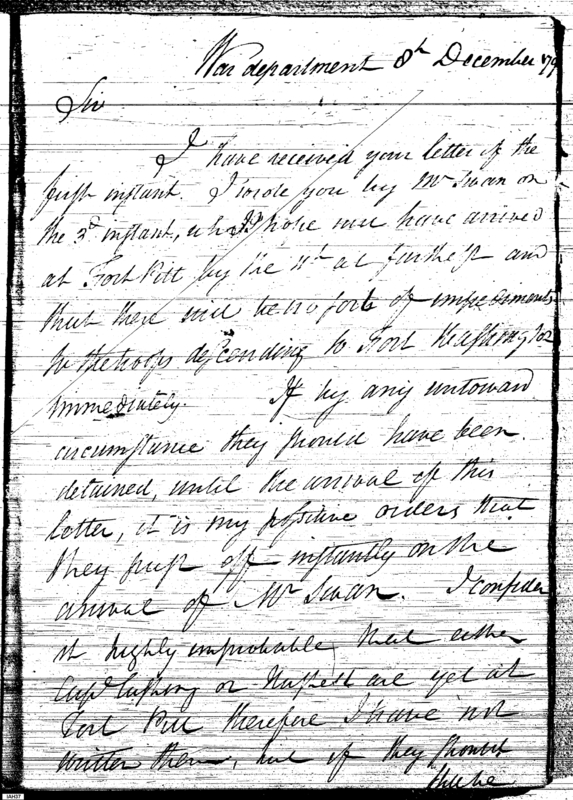 War department 8th December 179
Sir
I have received your letter of the
first instant. I wrote you by Mr Swan on
the 3d instant, who I hope will have arrived
at Fort Pitt by the 11th at furthest and
that there will be no sort of impediments
to the troops descending to Fort Washington
immediately. If by any untoward
circumstance they should have been
detained, until the arrival of this
letter, it is my positive orders that
they push off instantly on the
arrival of Mr Swan. I consider
it highly improbable that either
Capt Cushing or are yet at
Fort Pitt therefore I have not
written them, but if they should
still be
IAH37